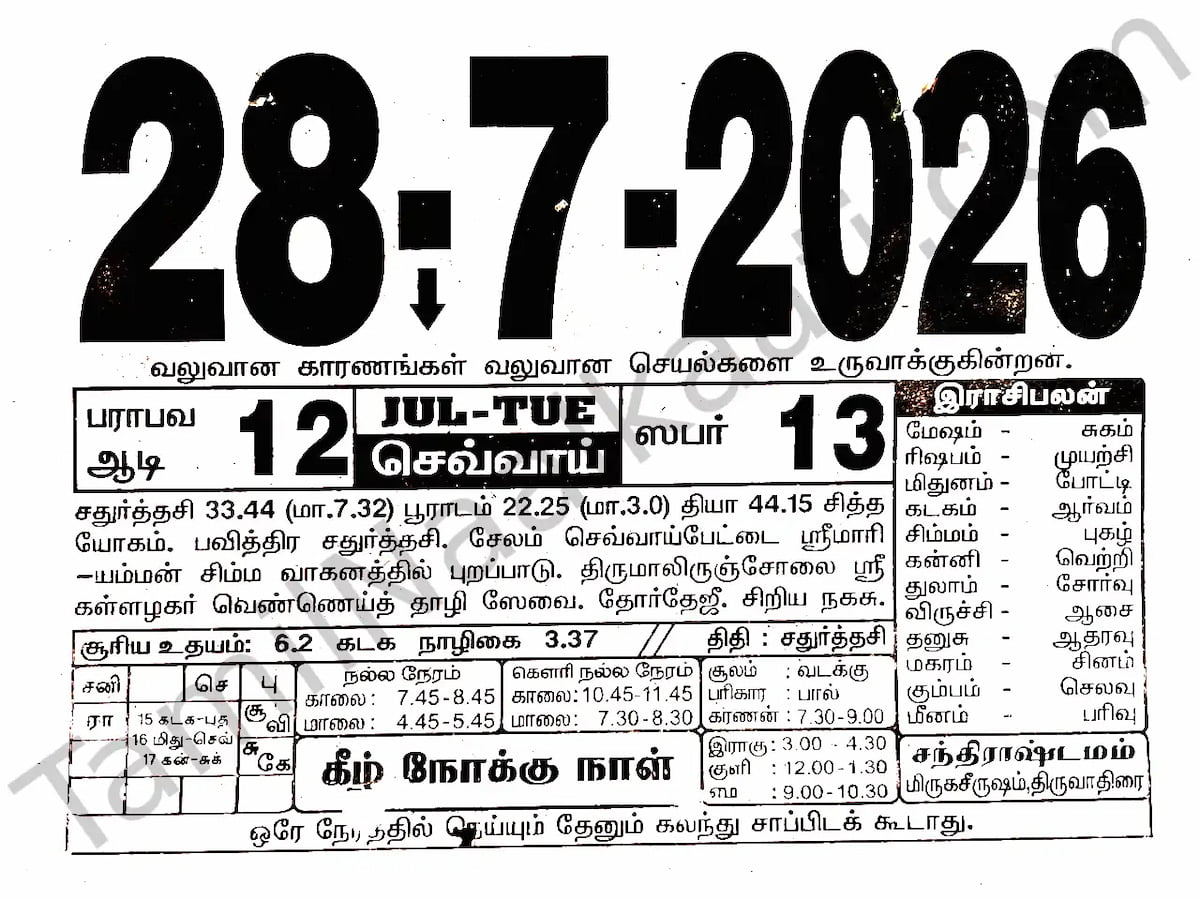 28-7-2026
வலுவான காரணங்கள் வலுவான செயல்களை உருவாக்குகின்றன.
பராபவ
ஆடி
12
JUL-TUE
செவ்வாய்
ஸபர்
13
சதுர்த்தசி 33.44 (மா.7.32) பூராடம் 22.25 (மா.3.0) தியா 44.15 சித்த
யோகம். பவித்திர சதுர்த்தசி. சேலம் செவ்வாய்பேட்டை ஸ்ரீமாரி
-யம்மன் சிம்ம வாகனத்தில் புறப்பாடு. திருமாலிருஞ்சோலை ஸ்ரீ
கள்ளழகர் வெண்ணெய்த் தாழி ஸேவை. தோர்தேஜீ. சிறிய நகசு.
சூரிய உதயம்: 6.2 கடக நாழிகை 3.37 // திதி : சதுர்த்தசி
இராசிபலன்
மேஷம் - சுகம்
ரிஷபம் - முயற்சி
மிதுனம் - போட்டி
கடகம் - ஆர்வம்
சிம்மம் - புகழ்
கன்னி - வெற்றி
துலாம் - சோர்வு
விருச்சி - ஆசை
தனுசு - ஆதரவு
மகரம் - சினம்
கும்பம் - செலவு
மீனம் - பரிவு
சனி செ பு
ரா சூ வி
சு கே
15 கடக-புத
16 மிது-செவ்
17 கன்-சுக்
நல்ல நேரம்
காலை: 7.45-8.45
மாலை: 4.45-5.45
கௌரி நல்ல நேரம்
காலை: 10.45-11.45
மாலை: 7.30-8.30
சூலம் : வடக்கு
பரிகார : பால்
கரணன் : 7.30-9.00
கீழ் நோக்கு நாள்
இராகு: 3.00 - 4.30
குளி : 12.00-1.30
எம : 9.00-10.30
சந்திராஷ்டமம்
மிருகசீருஷம்,திருவாதிரை
ஒரே நேரத்தில் நெய்யும் தேனும் கலந்து சாப்பிடக் கூடாது.
TamilNaalkaatti.com